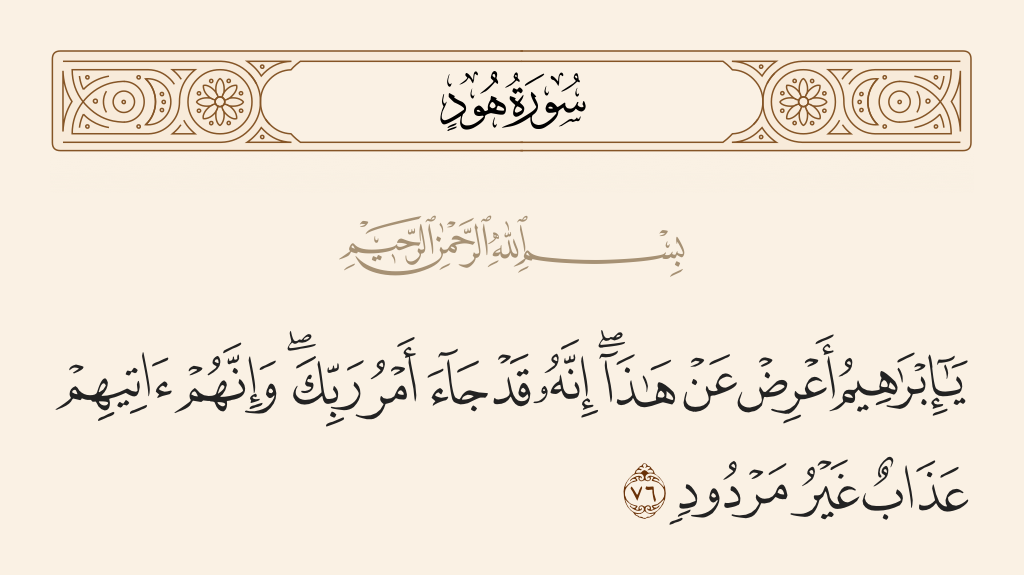 سُورَةُ هُودٍ
بِسْمِ ٱللَّهِ ٱلرَّحْمَٰنِ ٱلرَّحِيمِ
يَـٰٓإِبْرَٰهِيمُ أَعْرِضْ عَنْ هَـٰذَآ ۖ إِنَّهُۥ قَدْ جَآءَ أَمْرُ رَبِّكَ ۖ وَإِنَّهُمْ ءَاتِيهِمْ
عَذَابٌ غَيْرُ مَرْدُودٍ ٧٦